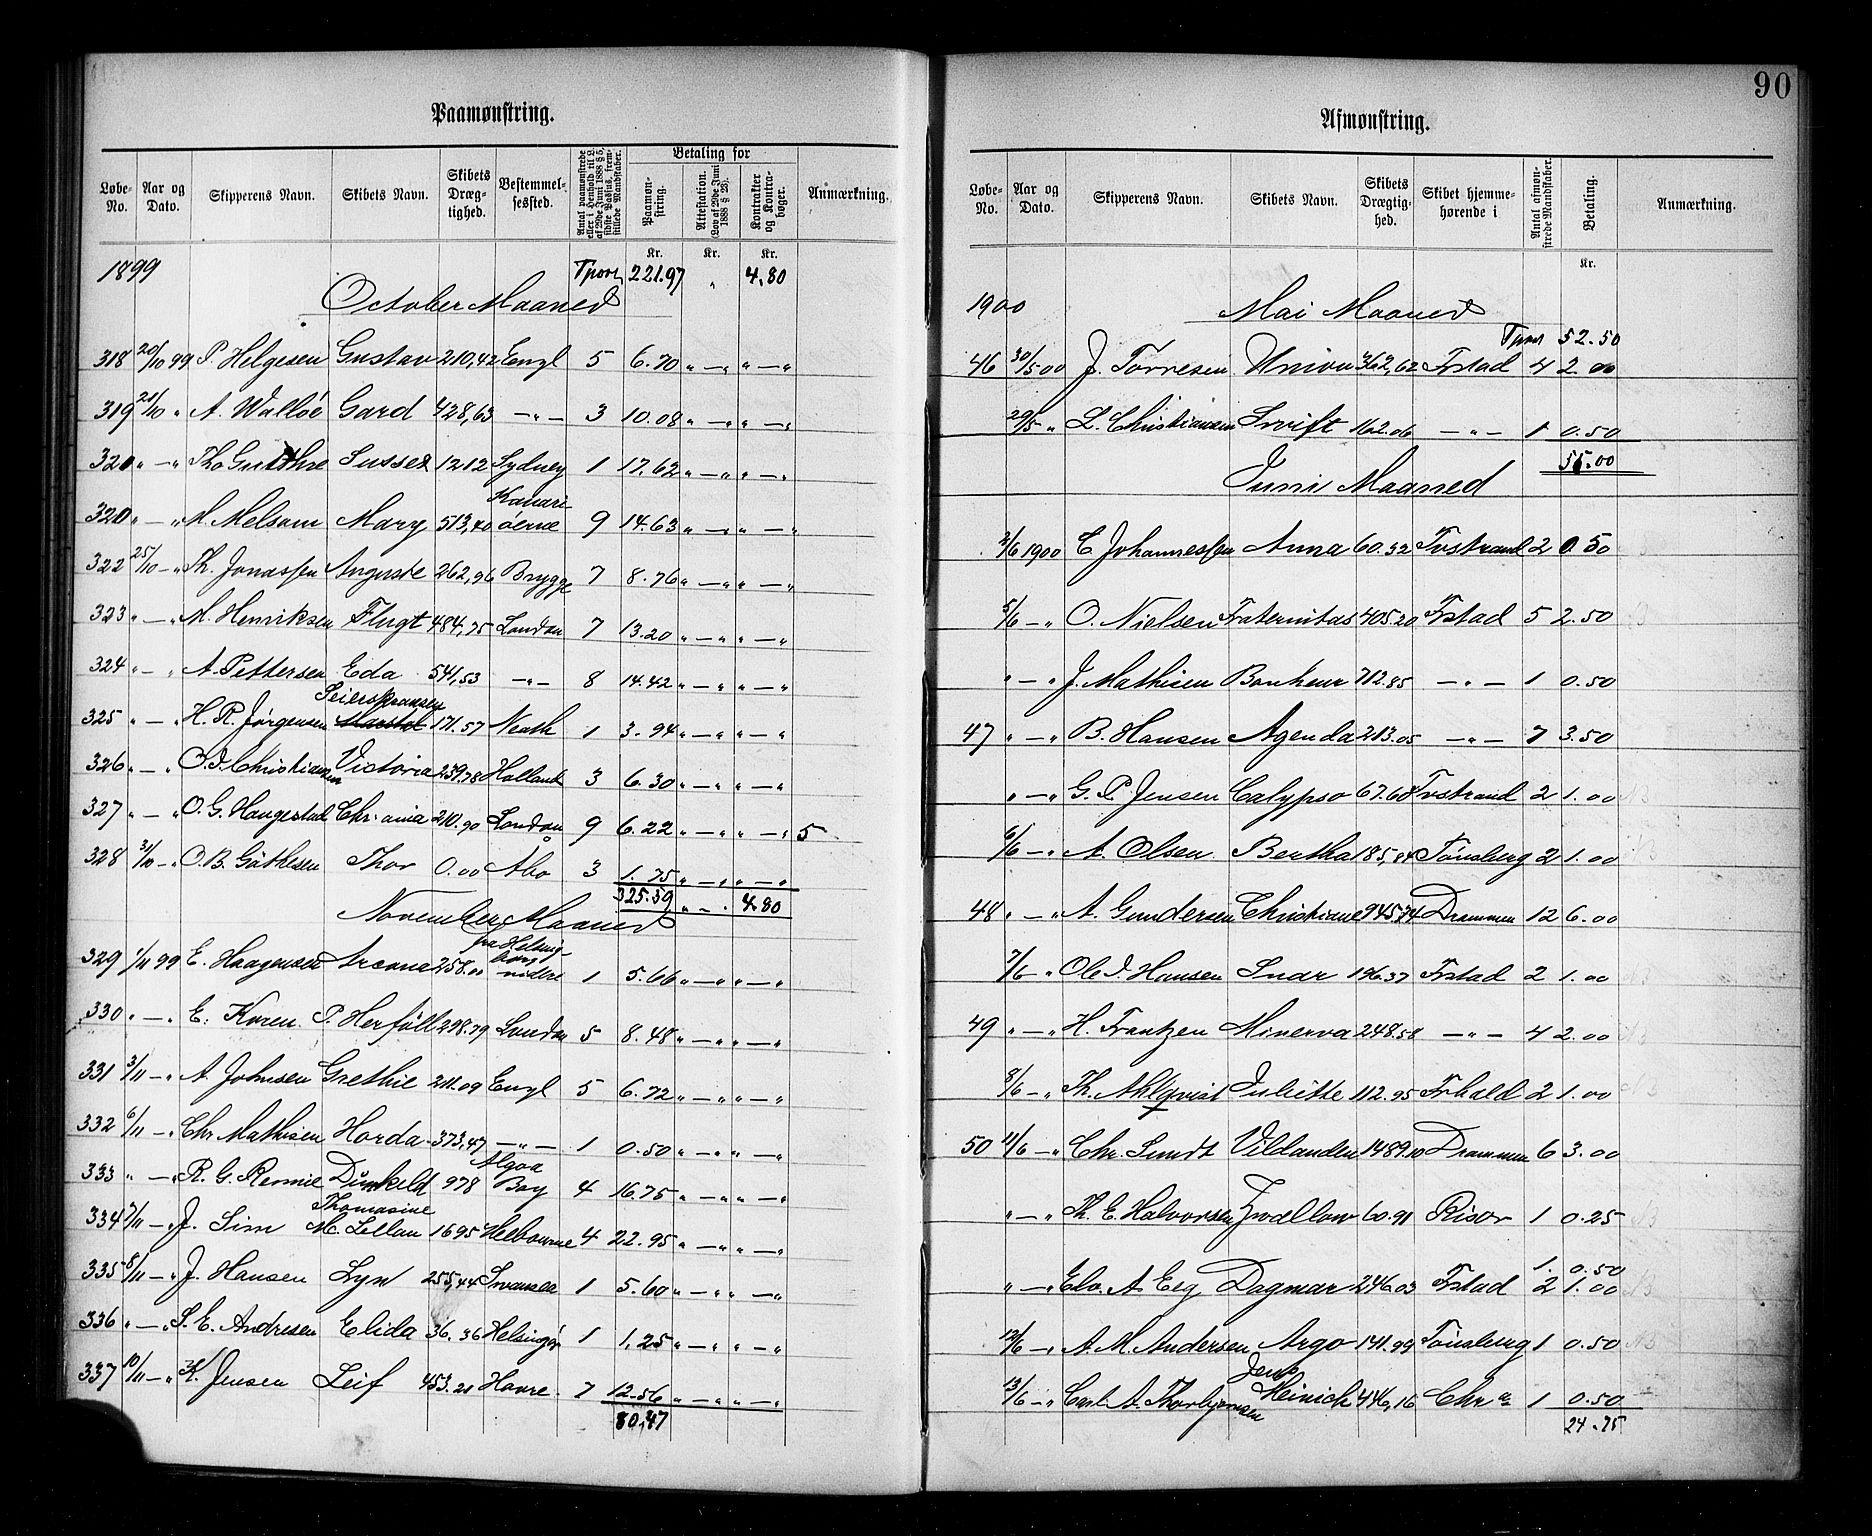 90
Paamønstring.
Løbe-No. Aar og Dato. Skipperens Navn. Skibets Navn. Skibets Dræg-tighed. Bestemmel-sessted. Antal paamønstrede eller i Henhold til L. af 29de Juni 1888 § 5, sidste Passus, frem-stillede Mandskaber. Betaling for Paamøn-string. Attestation. (Lov af 29de Juni 1888 § 28). Kontrakter og Kontra-bøger. Anmærkning.
Kr. Kr. Kr.
1899 Tport 221.97 " 4.80
October Maaned
318 20/10 99 P. Helgesen Gustav 210,42 Engl 5 6.70 " — " " — "
319 21/10 " A. Walløe Gard 428,63 — " — 3 10.08 " — " " — "
320 " — " Tho Guthre Sussex 1212 Sydney 1 17.62 " — " " — "
320 " — " M. Melsom Mary 513,40 Kanari øerne 9 14.63 " — " " — "
322 25/10 — " Th. Jonassen Auguste 262,96 Brygge 7 8.76 " — " " — "
323 " — " M. Henriksen Flugt 484,75 London 7 13.20 " — " " — "
324 " — " A. Pettersen Eida 541,53 — " — 8 14.42 " — " " — "
325 " — " H. R. Jørgensen Seierskransen 171.57 Neath 1 3.94 " — " " — "
326 " — " O. J. Christiansen Victoria 239.78 Holland 3 6.30 " — " " — "
327 " — " O. G. Haugestad Chr. ania 210.90 London 9 6.22 " — " " — " 5
328 31/10 — " O. B. Gøthesen Thor 0.00 Åbo 3 1.75 " — " " — "
325.59 " — . 4.80
November Maaned
329 1/11 99 E. Haagensen Arcona 258.00 fra Helsing-borg videre 1 5.66 " — " " — "
330 " — " E. Koren P. Herføll 298.79 London 5 8.48 " — " " — "
331 3/11 — " A. Johnsen Grethie 211.09 Engl 5 6.72 " — " " — "
332 6/11 — " Chr Mathisen Horda 373,47 — " — 1 0.50 " — " " — "
333 " — " R. G. Rennie Dunkeld 978 Algoa Bay 4 16.75 " — " " — "
334 7/11 — " J. Sim Thomasine Mc Lellan 1695 Melbourne 4 22.95 " — " " — "
335 8/11 — " J. Hansen Lyn 255,44 Swansea 1 5.60 " — " " — "
336 " — " S. E. Andresen Elida 36.36 Helsingør 1 1.25 " — " " — "
337 10/11 — " K. Jensen Leif 453.21 Havre 7 12.56 " — " " — "
80.47
Afmønstring.
Løbe-No. Aar og Dato. Skipperens Navn. Skibets Navn. Skibets Drægtig-hed. Skibet hjemme-hørende i Antal afmøn-strede Mandskaber. Betaling. Anmærkning.
Kr.
1900 Mai Maaned
Tport 52.50
46 30/5 00 J. Torresen Union 362,62 Frstad 4 2.00
29/5 " L. Christiansen Swift 162.06 — " — 1 0.50
55.00
Juni Maaned
2/6 1900 C Johannessen Anna 60.32 Tvstrand 2 0.50
5/6 — " O. Nielsen Fraternitas 405.20 Frstad 5 2.50
" — " J. Mathisen Bonheur 712.85 — " — 1 0.50
47 " — " B. Hansen Agenda 213.05 — " — 7 3.50
" — " G. P. Jensen Calypso 67.68 Tvstrand 2 1.00
6/6 — " A. Olsen Bertha 185,84 Tønsberg 2 1.00
48 " — " A. Gundersen Christiane 945,74 Drammen 12 6.00
7/6 — " Ole J. Hansen Snar 196.37 Frstad 2 1.00
49 " — " H. Frantzen Minerva 248.58 — " — 4 2.00
8/6 — " Th. Ahlqvist Juliette 112.95 Frhald 2 1.00
50 11/6 — " Chr. Lundt Vildanden 1489.10 Drammen 6 3.00
" — " Th. E. Halvorsen Swallow 60.91 Risør 1 0.25
1. 0.50
" — " Elv. A. Esg Dagmar 246.03 Frstad 2 1.00
12/6 — " A. M. Andersen Argo 141.99 Tønsberg 1 0.50
13/6 — " Carl A. Thorbjørnsen Jens Meinich 446,16 Chr a 1 0.50
24.75